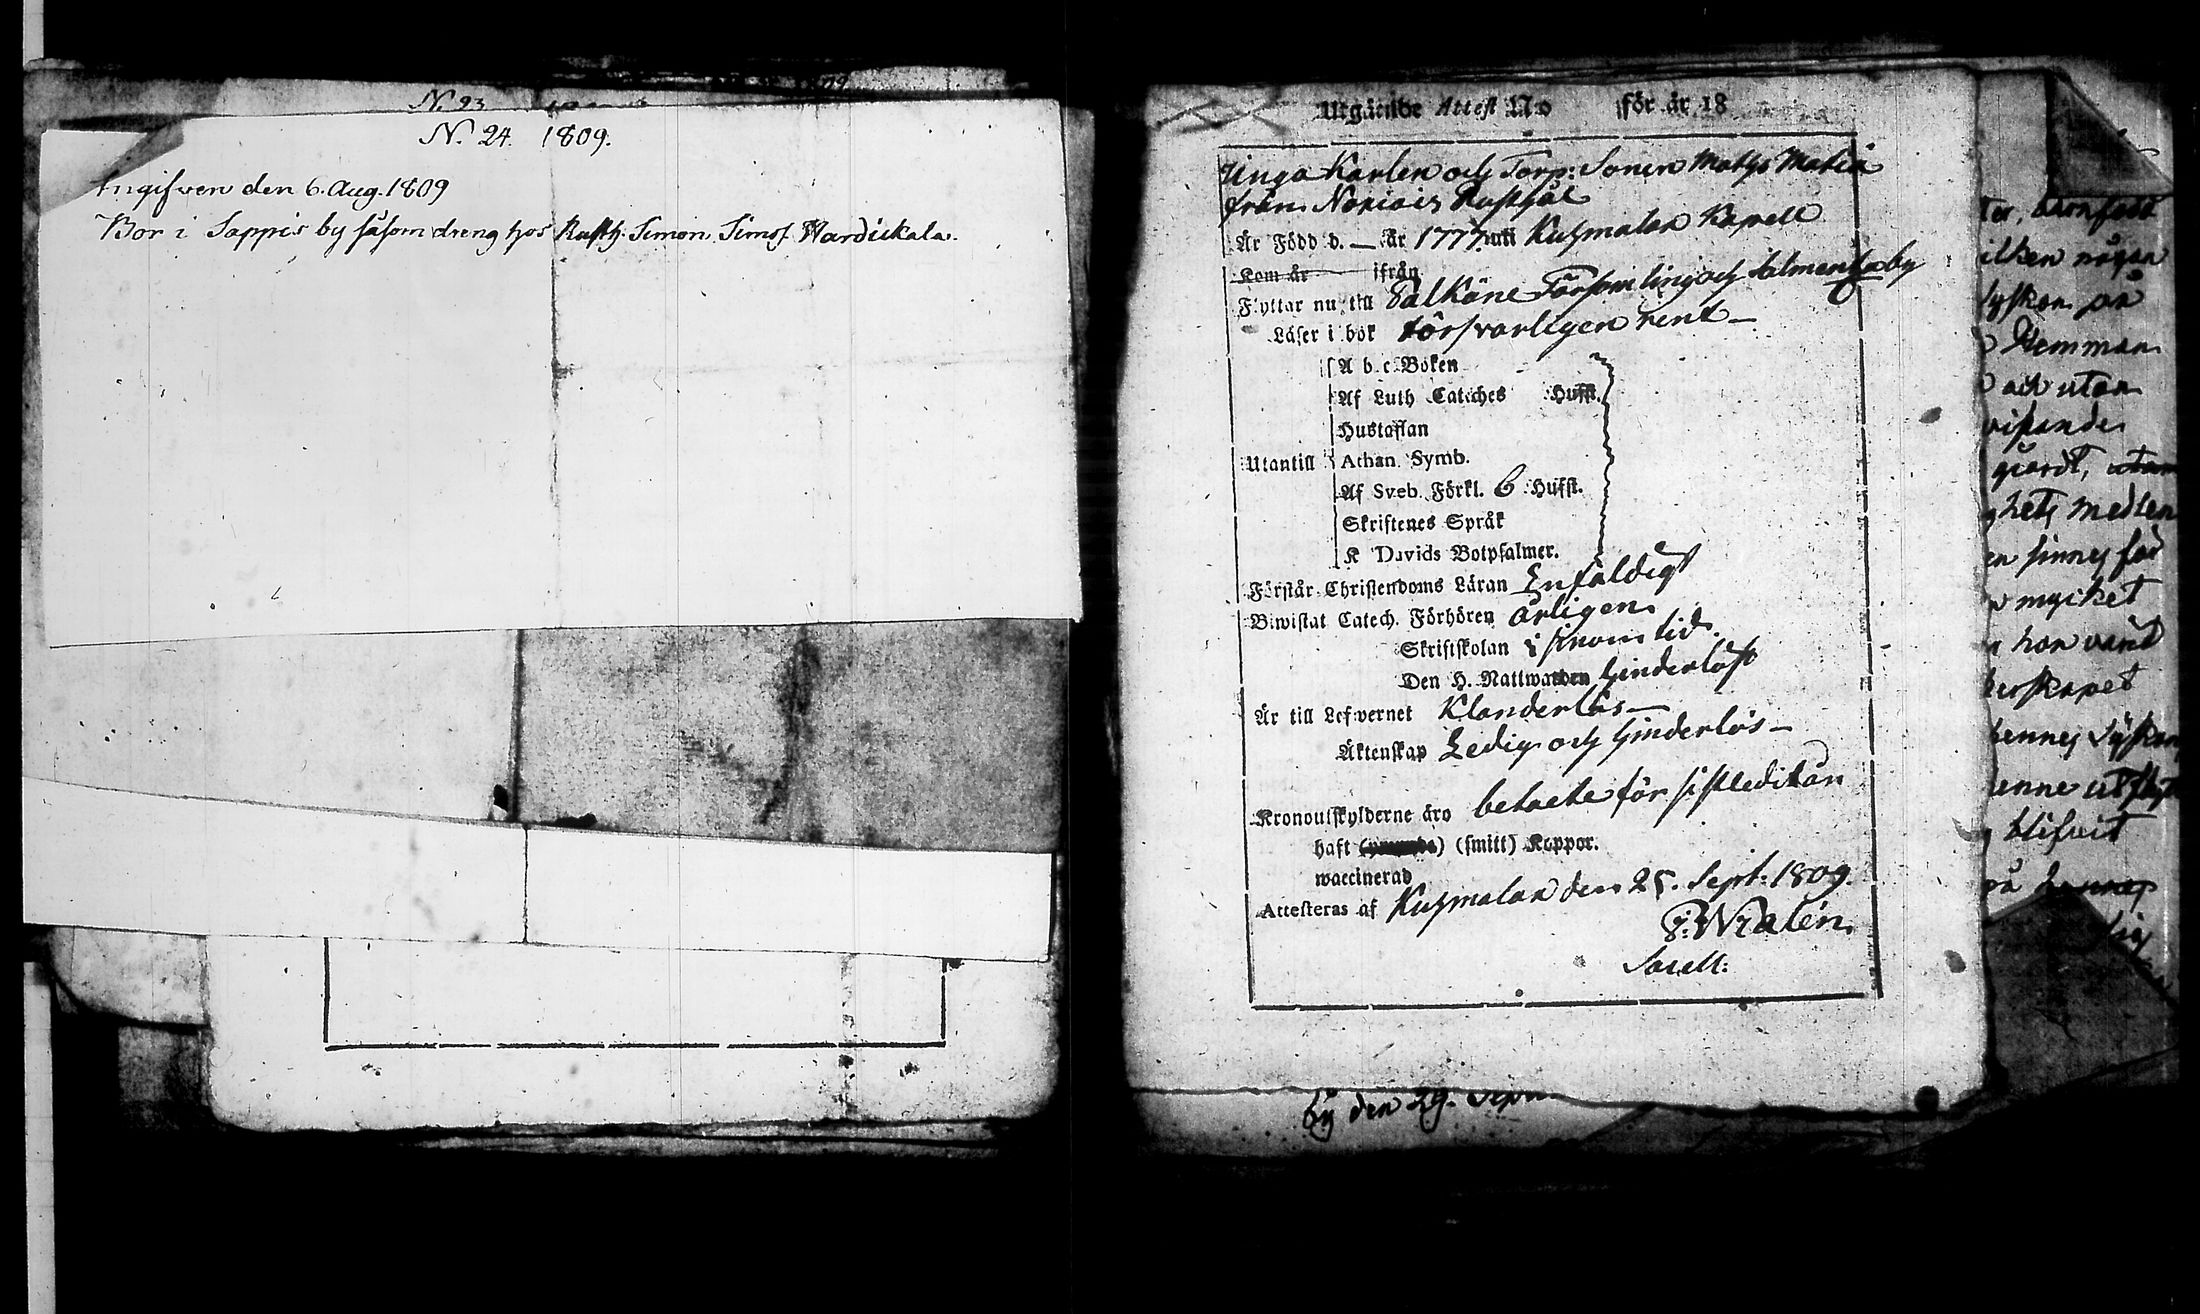 N. 23
N. 24. 1809.
Ingifven den 6. Aug. 1809
Bor i Sappis by såsom dreng hos Rusth. Simon Simos Wardickala.
Utgående Attest N:o för år 18
Unga Karlen och Torp: Sonen Matts Matts
från Noriais Rusthål
Är Född d. — år 1777. uti Kuhmalax Kapell
Kom år ifrån
Flyttar nu till Pälkäne Församling och Salmentaby
Läser i bok försvarligen rent —
A b c Boken
Af Luth Cateches Hufst.
Hustaflan
Utantill Athan. Symb.
Af Sveb. Förkl. 6 Hufst.
Skriftenes Språk
K Davids Botpsalmer.
Förstår Christendoms Läran Enfaldigt
Biwistat Catech. Förhören årligen
Skriftskolan i sinom tid.
Den H. Nattwarden hinderlöst
Är till Lefwernet Klanderlös —
Äktenskap Ledig och hinderlös —
Kronoutskylderne äro betalte för sistledit år
haft (smitt) Koppor.
waccinerad
Attesteras af Kuhmalax den 25. Sept: 1809.
Sacell:
by den 29. Sept
ter, barnfödd
ilken någon
Syskon på
Hemman
och utan
visande
giordt, utan
ghets medlen
en sinnes för
mycket
han varit
erskapet
hennes Syskon
enne utflyt
blifvit
på hennes
sig